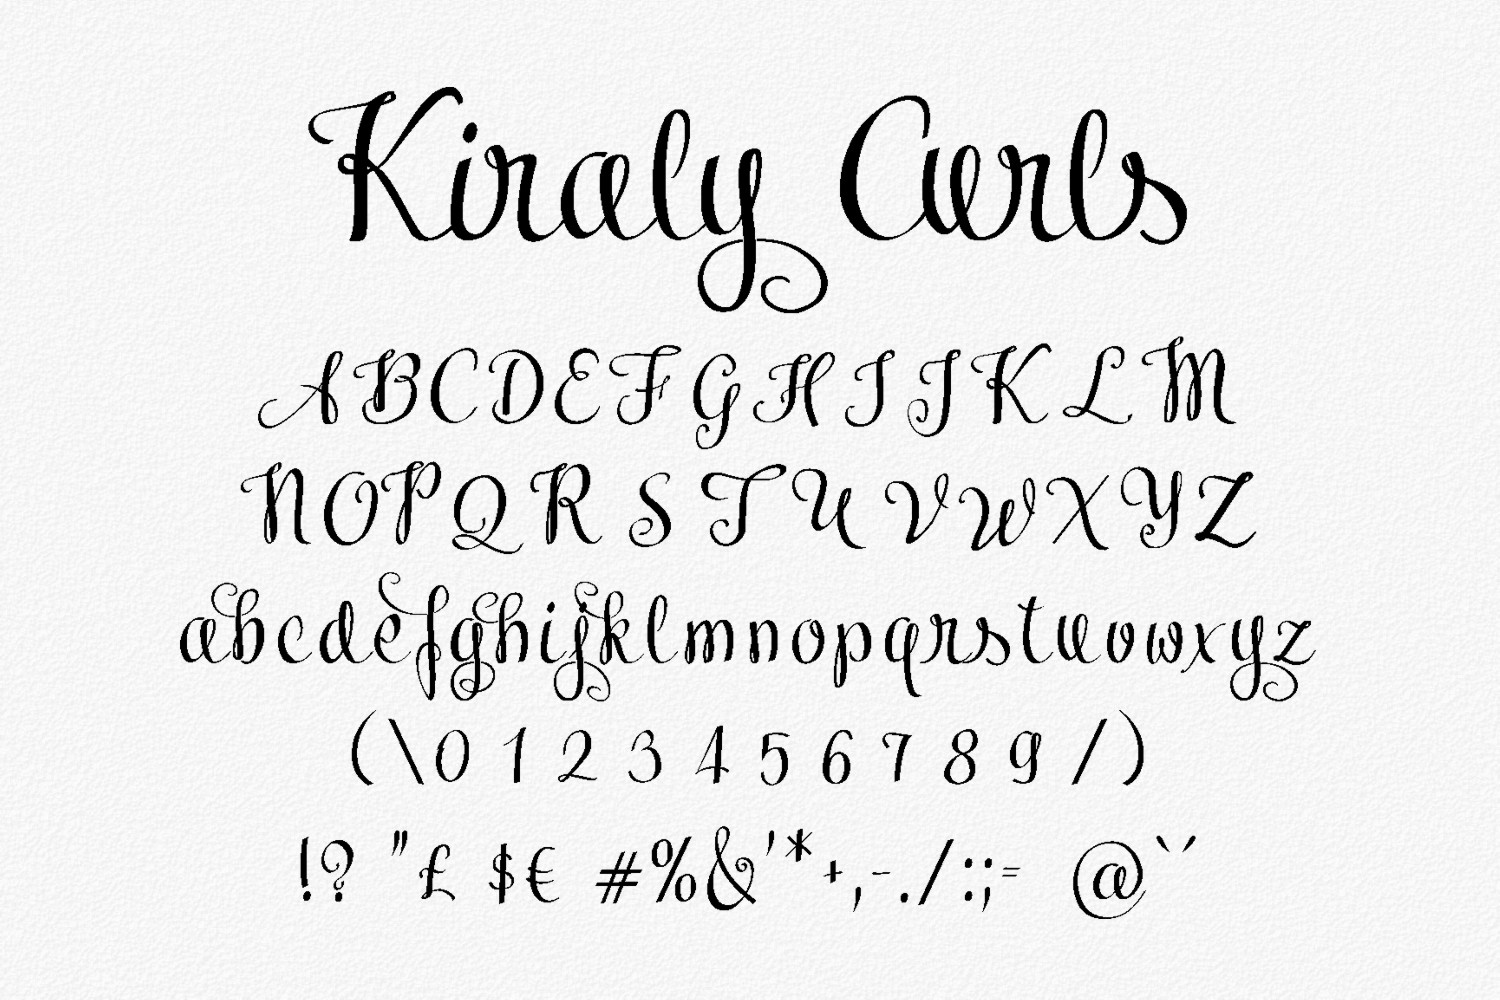 Kiraly Curls
ABCDEFGHIJKLM
NOPQRSTUVWXYZ
abcdefghijklmnopqrstuvwxyz
(\0 1 2 3 4 5 6 7 8 9 /)
!? "£ $€ #%&'*+,-./:;= @`´